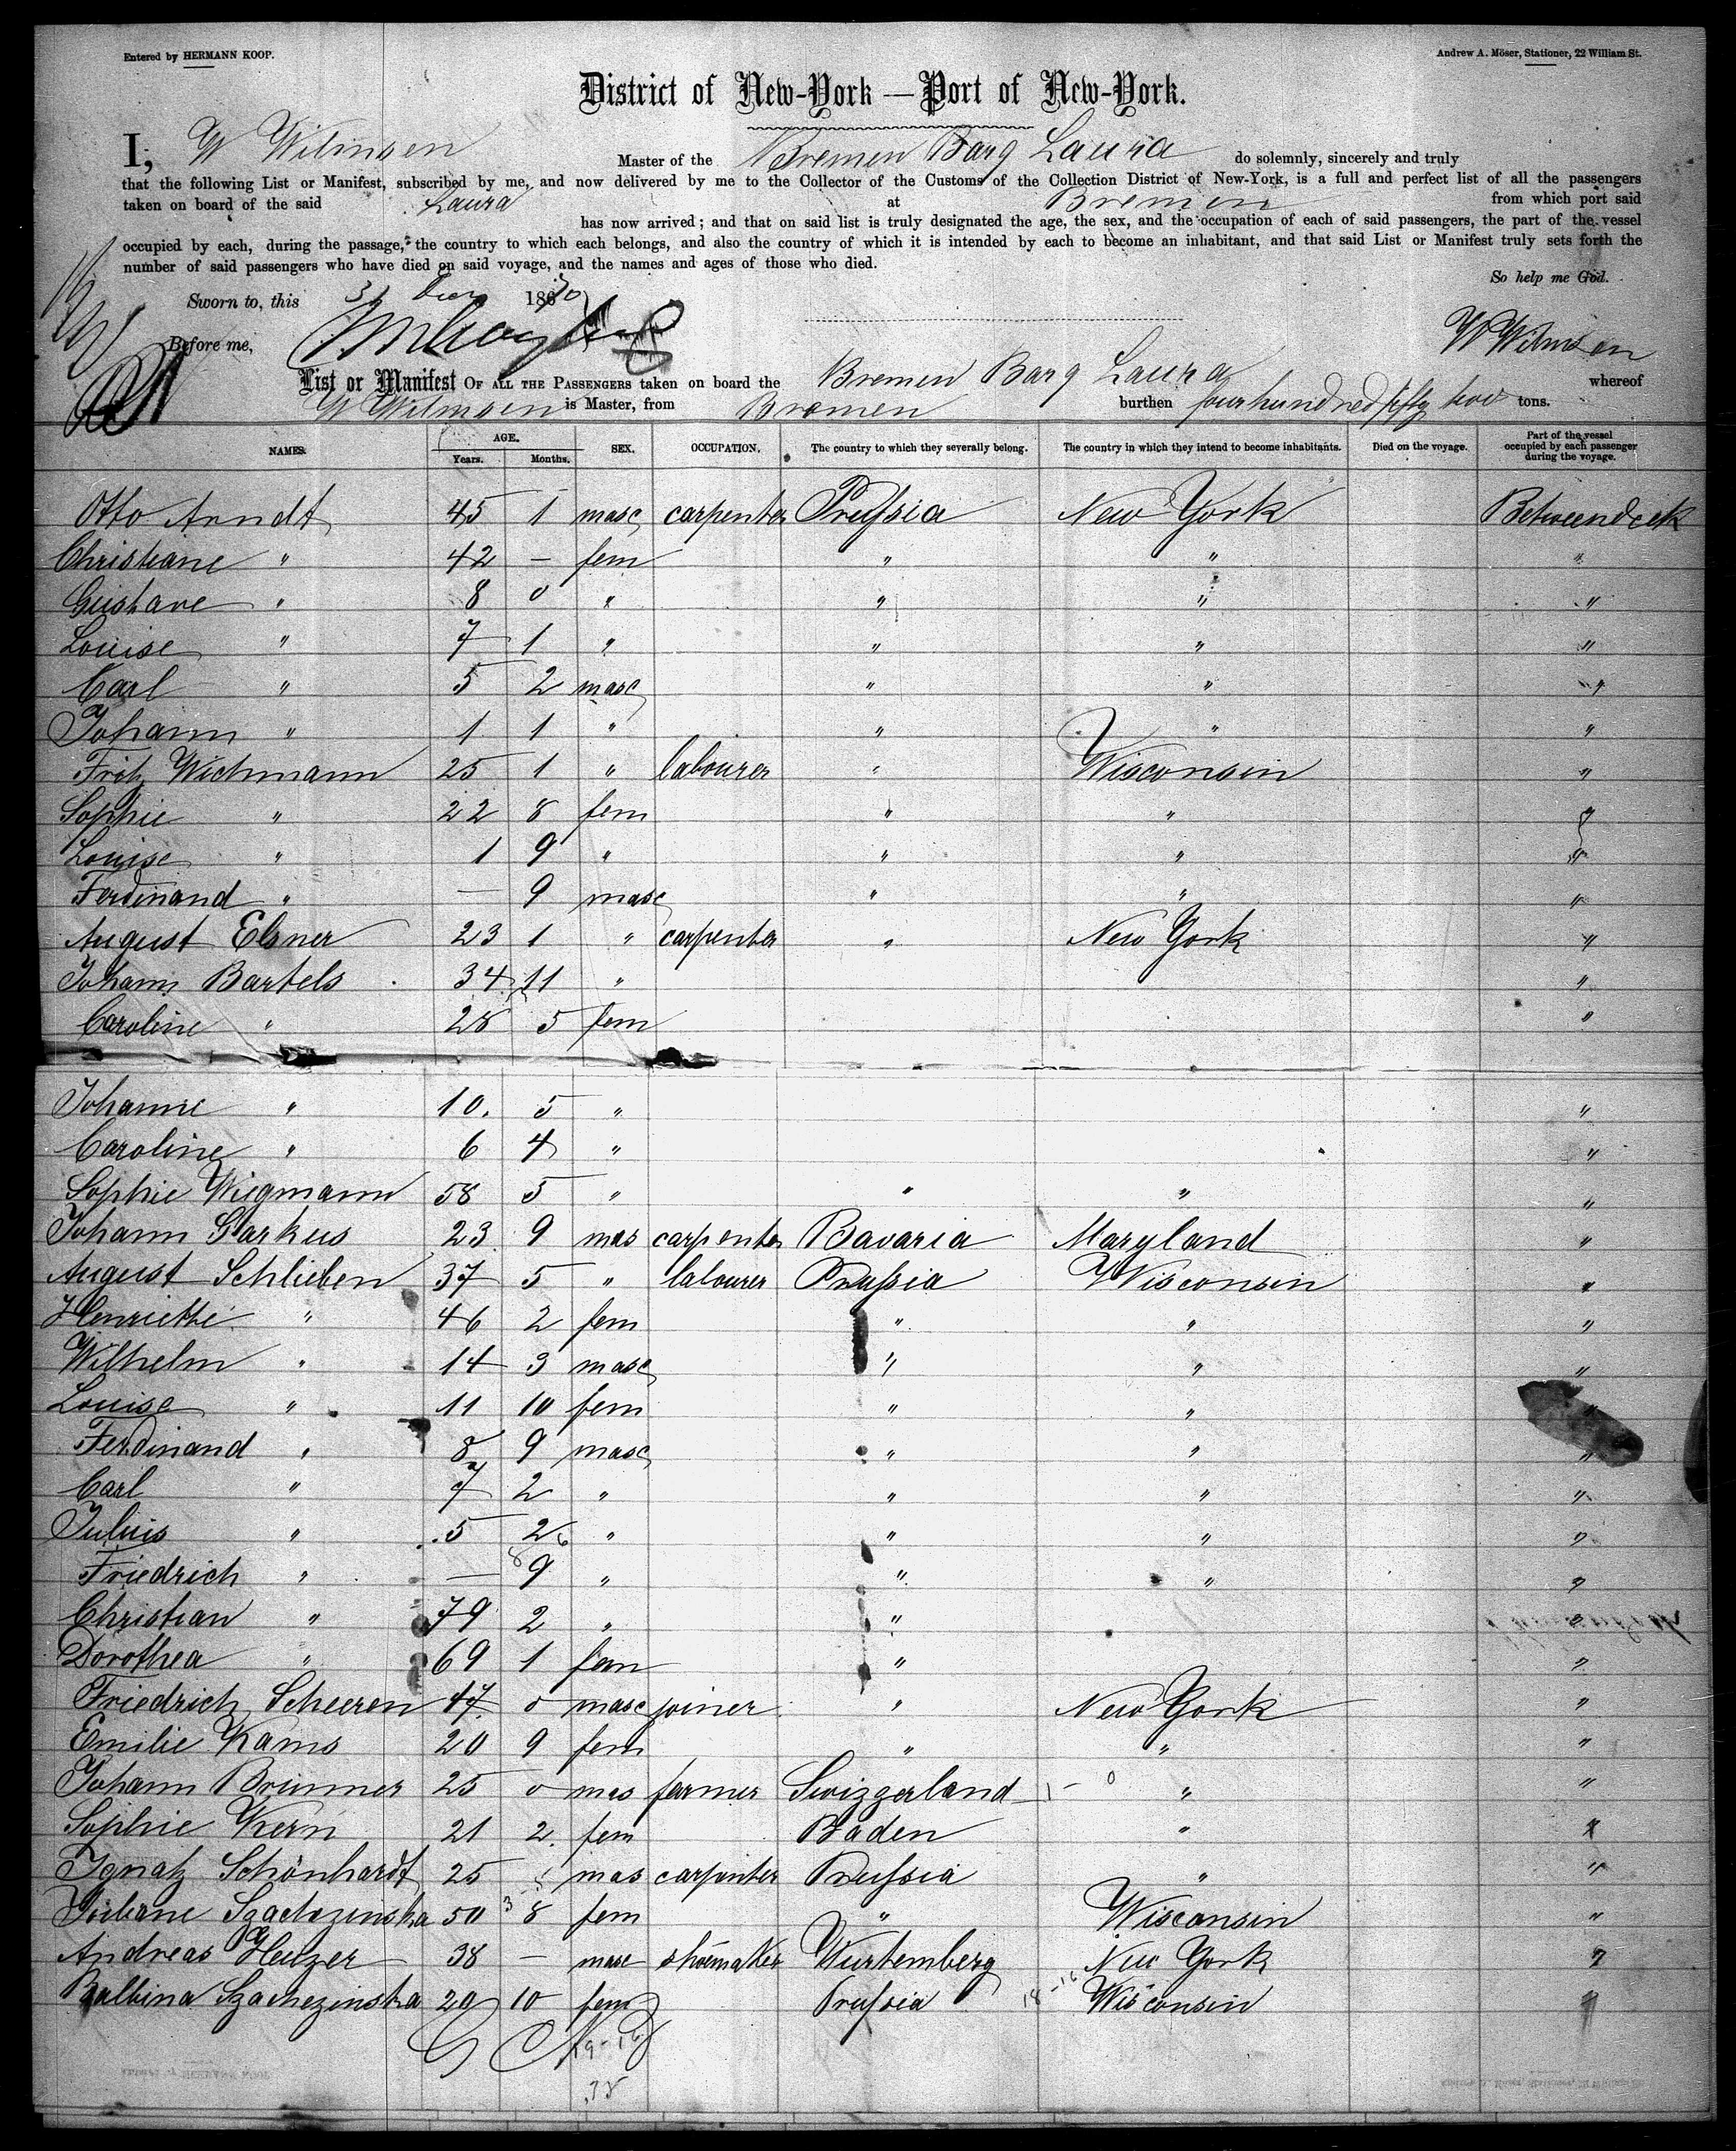 Entered by HERMANN KOOP. Andrew A. Möser, Stationer, 22 William St.
District of New-York — Port of New-York.
I, W Wilmsen Master of the Bremen Barq Laura do solemnly, sincerely and truly
that the following List or Manifest, subscribed by me, and now delivered by me to the Collector of the Customs of the Collection District of New-York, is a full and perfect list of all the passengers
taken on board of the said Laura at Bremen from which port said
has now arrived; and that on said list is truly designated the age, the sex, and the occupation of each of said passengers, the part of the vessel
occupied by each, during the passage, the country to which each belongs, and also the country of which it is intended by each to become an inhabitant, and that said List or Manifest truly sets forth the
number of said passengers who have died on said voyage, and the names and ages of those who died.
So help me God.
Sworn to, this 31 186
Before me, W Wilmsen
List or Manifest OF ALL THE PASSENGERS taken on board the Bremen Barq Laura whereof
W Wilmsen is Master, from Bremen burthen four hundred fifty two tons.
NAMES. AGE. Years. Months. SEX. OCCUPATION. The country to which they severally belong. The country in which they intend to become inhabitants. Died on the voyage. Part of the vessel occupied by each passenger during the voyage.
Otto Arndt 45 1 masc carpenter Prussia New York Betweendeck
Christiane " 42 — fem " " "
Gustave " 8 0 " " " "
Louise " 7 1 " " " "
Carl " 5 2 masc " " "
Johann " 1 1 " " " "
Fritz Wichmann 25 1 " labourer " Wisconsin "
Sophie " 22 8 fem " " "
Louise " 1 9 " " " "
Ferdinand " — 9 masc " " "
August Elsner 23 1 " carpenter " New York "
Johann Bartels 34 11 " "
Caroline " 28 5 fem "
Johanne " 10. 5 " "
Caroline " 6 4 " "
Sophie Wiegmann 58 5 " " " "
Johann Garkus 23 9 mas carpenter Bavaria Maryland "
August Schlieben 37 5 " labourer Prussia Wisconsin "
Henriette " 46 2 fem " " "
Wilhelm " 14 3 masc " " "
Louise " 11 10 fem " " "
Ferdinand " 8 9 masc " " "
Carl " 7 2 " " " "
Juluis " 5 2 " " " "
Friedrich " — 9 " " " "
Christian " 79 2 " " "
Dorothea " 69 1 fem " "
Friedrich Scheeren 47 0 masc joiner " New York "
Emilie Kams 20 9 fem " " "
Johann Brunner 25 0 mas farmer Swizzerland " "
Sophie Kern 21 2. fem Baden " "
Ignatz Schönhardt 25 mas carpenter Prussia " "
Juliane Szachezinska 50 8 fem " Wisconsin "
Andreas Heuzer 38 — masc shoemaker Wurtemberg New York "
Balbina Szachezinska 20 10 fem Prussia Wisconsin "
19-16
38